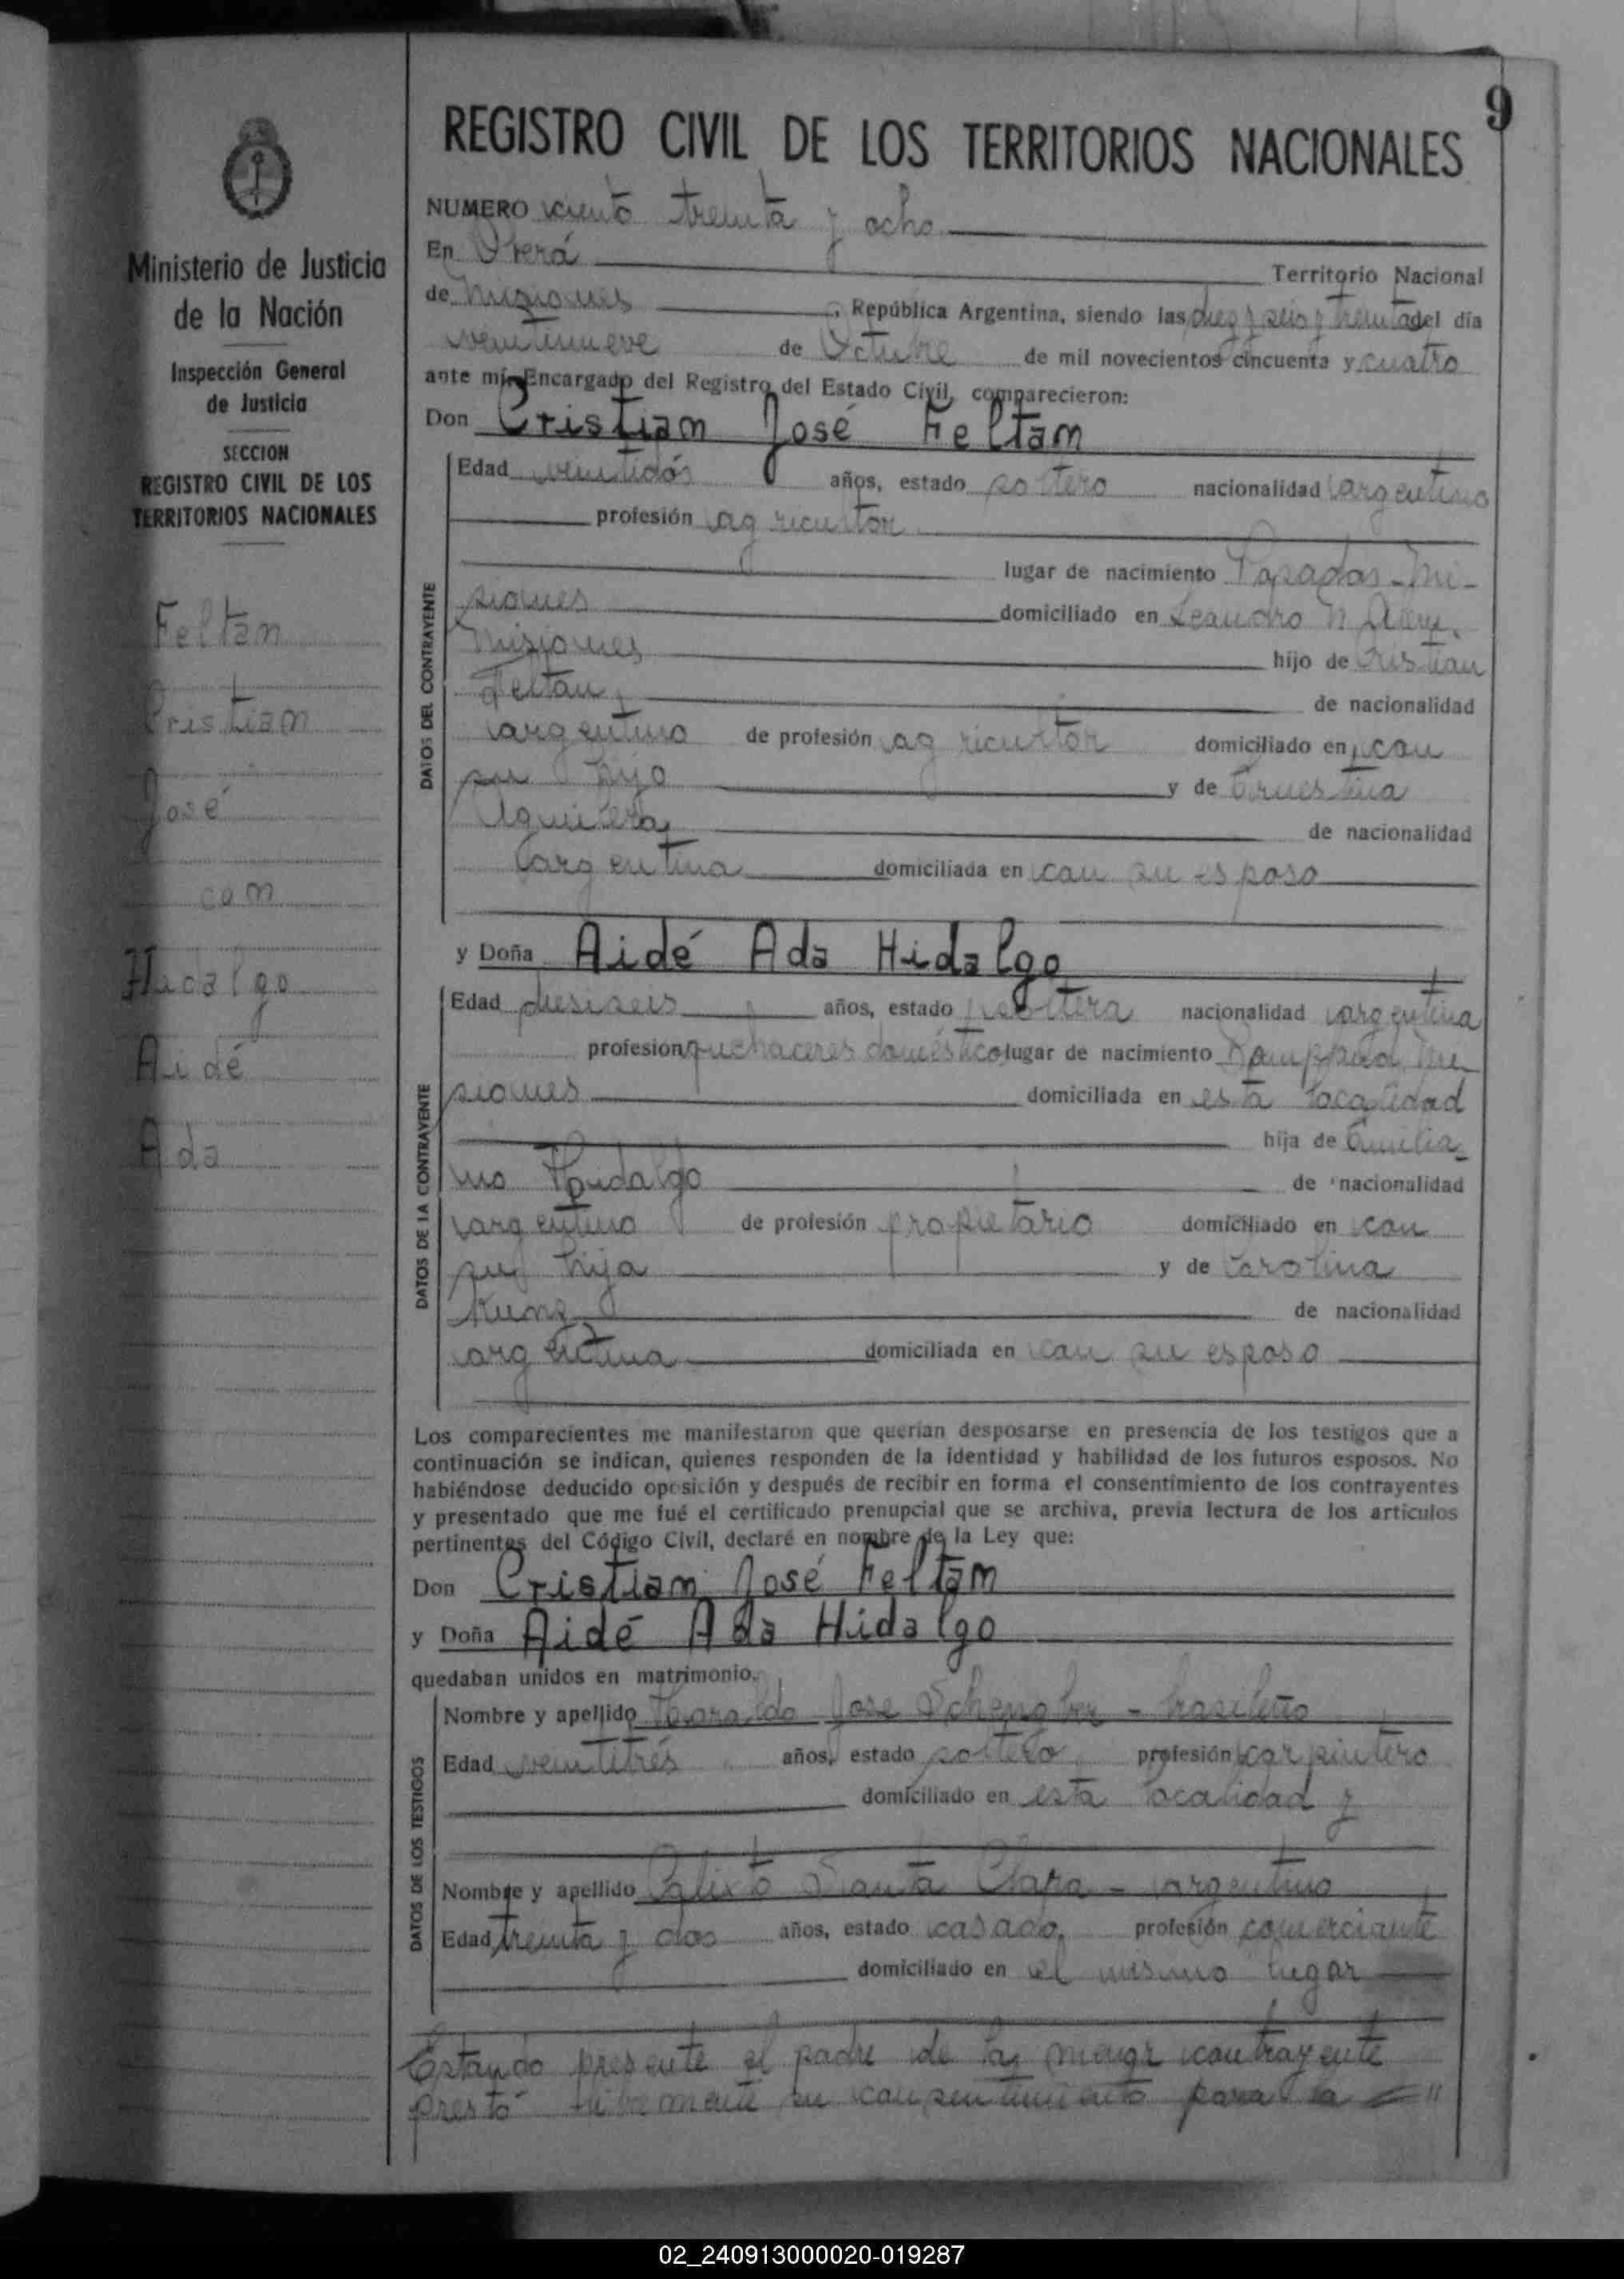 9
REGISTRO CIVIL DE LOS TERRITORIOS NACIONALES
Ministerio de Justicia
de la Nación
Inspección General
de Justicia
SECCION
REGISTRO CIVIL DE LOS
TERRITORIOS NACIONALES
Feltan
Cristiam
José
con
Hidalgo
Aidé
Ada
NUMERO ciento treinta y ocho
En Oberá Territorio Nacional
de Misiones, República Argentina, siendo las diez y seis y treinta del día
veintinueve de Octubre de mil novecientos cincuenta y cuatro
ante mí, Encargado del Registro del Estado Civil, comparecieron:
Don Cristiam José Feltam
DATOS DEL CONTRAYENTE
Edad veintidós años, estado soltero nacionalidad argentino
profesión agricultor
lugar de nacimiento Posadas - Mi-
siones domiciliado en Leandro N. Alem,
Misiones hijo de Cristian
Feltan, de nacionalidad
argentino de profesión agricultor domiciliado en con
su hijo y de Ernestina
Aguilera, de nacionalidad
argentina domiciliada en con su esposo
y Doña Aidé Ada Hidalgo
DATOS DE LA CONTRAYENTE
Edad dieciseis años, estado soltera nacionalidad argentina
profesión quehaceres domésticos lugar de nacimiento Mi-
siones domiciliada en esta localidad
hija de Emilia-
no Hidalgo de nacionalidad
argentino de profesión propietario domiciliado en con
su hija y de Carolina
de nacionalidad
argentina domiciliada en con su esposo
Los comparecientes me manifestaron que querían desposarse en presencia de los testigos que a
continuación se indican, quienes responden de la identidad y habilidad de los futuros esposos. No
habiéndose deducido oposición y después de recibir en forma el consentimiento de los contrayentes
y presentado que me fué el certificado prenupcial que se archiva, previa lectura de los artículos
pertinentes del Código Civil, declaré en nombre de la Ley que:
Don Cristiam José Feltam
y Doña Aidé Ada Hidalgo
quedaban unidos en matrimonio.
DATOS DE LOS TESTIGOS
Nombre y apellido Haraldo José - brasileño
Edad veintitrés años, estado soltero profesión carpintero
domiciliado en esta localidad y
Nombre y apellido Calixto Santa Clara - argentino
Edad treinta y dos años, estado casado, profesión comerciante
domiciliado en el mismo lugar
Estando presente el padre de la menor contrayente
prestó libremente su consentimiento para la
02_240913000020-019287